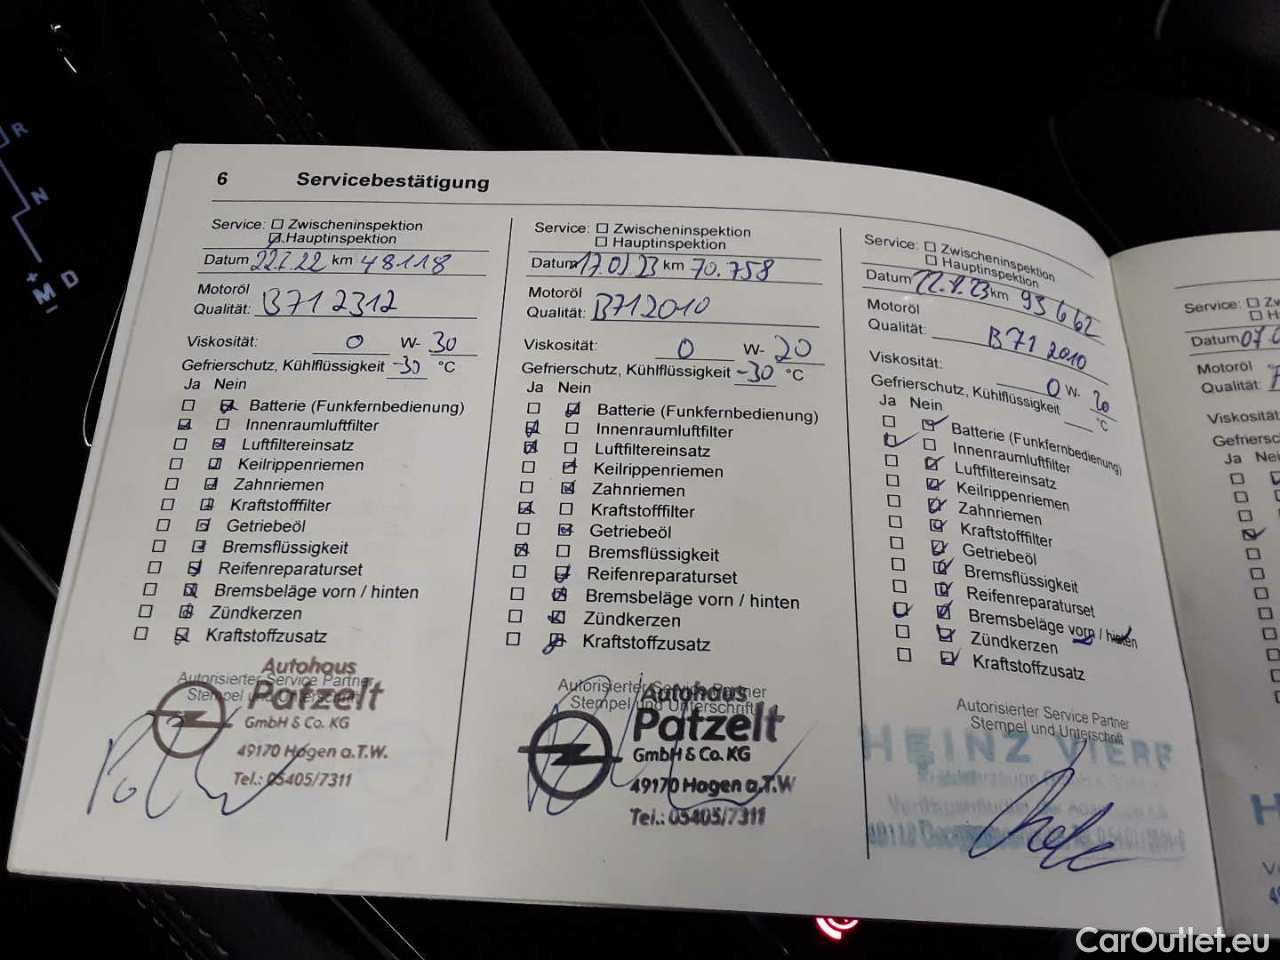 6 Servicebestätigung
Service: Zwischeninspektion
Hauptinspektion
Datum 22.7.22 km 48118
Motoröl
Qualität: B71 2312
Viskosität: 0 W- 30
Gefrierschutz, Kühlflüssigkeit -30 °C
Ja Nein
Batterie (Funkfernbedienung)
Innenraumluftfilter
Luftfiltereinsatz
Keilrippenriemen
Zahnriemen
Kraftstofffilter
Getriebeöl
Bremsflüssigkeit
Reifenreparaturset
Bremsbeläge vorn / hinten
Zündkerzen
Kraftstoffzusatz
Autorisierter Service Partner
Stempel und Unterschrift
Autohaus
Patzelt
GmbH & Co. KG
49170 Hagen a.T.W.
Tel.: 05405/7311
Service: Zwischeninspektion
Hauptinspektion
Datum 17.01.23 km 70.758
Motoröl
Qualität: B712010
Viskosität: 0 W- 20
Gefrierschutz, Kühlflüssigkeit -30 °C
Ja Nein
Batterie (Funkfernbedienung)
Innenraumluftfilter
Luftfiltereinsatz
Keilrippenriemen
Zahnriemen
Kraftstofffilter
Getriebeöl
Bremsflüssigkeit
Reifenreparaturset
Bremsbeläge vorn / hinten
Zündkerzen
Kraftstoffzusatz
Autorisierter Service Partner
Stempel und Unterschrift
Autohaus
Patzelt
GmbH & Co. KG
49170 Hagen a.T.W
Tel.: 05405/7311
Service: Zwischeninspektion
Hauptinspektion
Datum km 93662
Motoröl
Qualität: B71 2010
Viskosität: 0 W- 20
Gefrierschutz, Kühlflüssigkeit °C
Ja Nein
Batterie (Funkfernbedienung)
Innenraumluftfilter
Luftfiltereinsatz
Keilrippenriemen
Zahnriemen
Kraftstofffilter
Getriebeöl
Bremsflüssigkeit
Reifenreparaturset
Bremsbeläge vorn / hinten
Zündkerzen
Kraftstoffzusatz
Autorisierter Service Partner
Stempel und Unterschrift
HEINZ
Service:
Datum 07.
Motoröl
Qualität:
Viskosität
Ja
R
N
+ M D
-
CarOutlet.eu